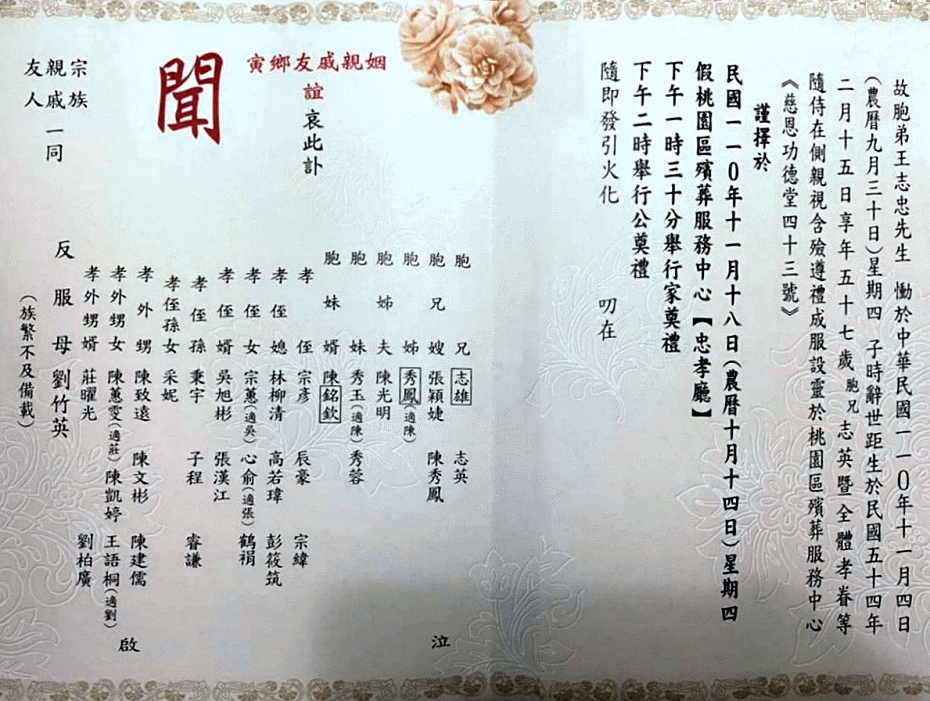 故胞弟王志忠先生 慟於中華民國一一0年十一月四日
(農曆九月三十日)星期四 子時辭世距生於民國五十四年
二月十五日享年五十七歲胞兄志英暨全體孝眷等
隨侍在側親視含殮遵禮成服設靈於桃園區殯葬服務中心
《慈恩功德堂四十三號》
謹擇於
民國一一0年十一月十八日(農曆十月十四日)星期四
假桃園區殯葬服務中心【忠孝廳】
下午一時三十分舉行家奠禮
下午二時舉行公奠禮
隨即發引火化 叨在
姻親戚友鄉寅
誼哀此訃
聞
胞兄 志雄 志英
胞兄嫂 張穎婕 陳秀鳳
胞姊 秀鳳(適陳)
胞姊夫 陳光明
胞妹 秀玉(適陳) 秀蓉
胞妹婿 陳銘欽
孝侄 宗彥 辰豪 宗緯
孝侄媳 林柳清 高若瑋 彭筱筑
孝侄女 宗蕙(適吳) 心俞(適張) 鶴褘
孝侄婿 吳旭彬 張漢江
孝侄孫 秉宇 子程 睿謙
孝侄孫女 采妮
孝外甥 陳致遠 陳文彬 陳建儒
孝外甥女 陳蕙雯(適莊) 陳凱婷 王語桐(適劉)
孝外甥婿 莊曜光 劉柏廣
反服母 劉竹英
(族繁不及備載)
泣
啟
宗族
親戚一同
友人